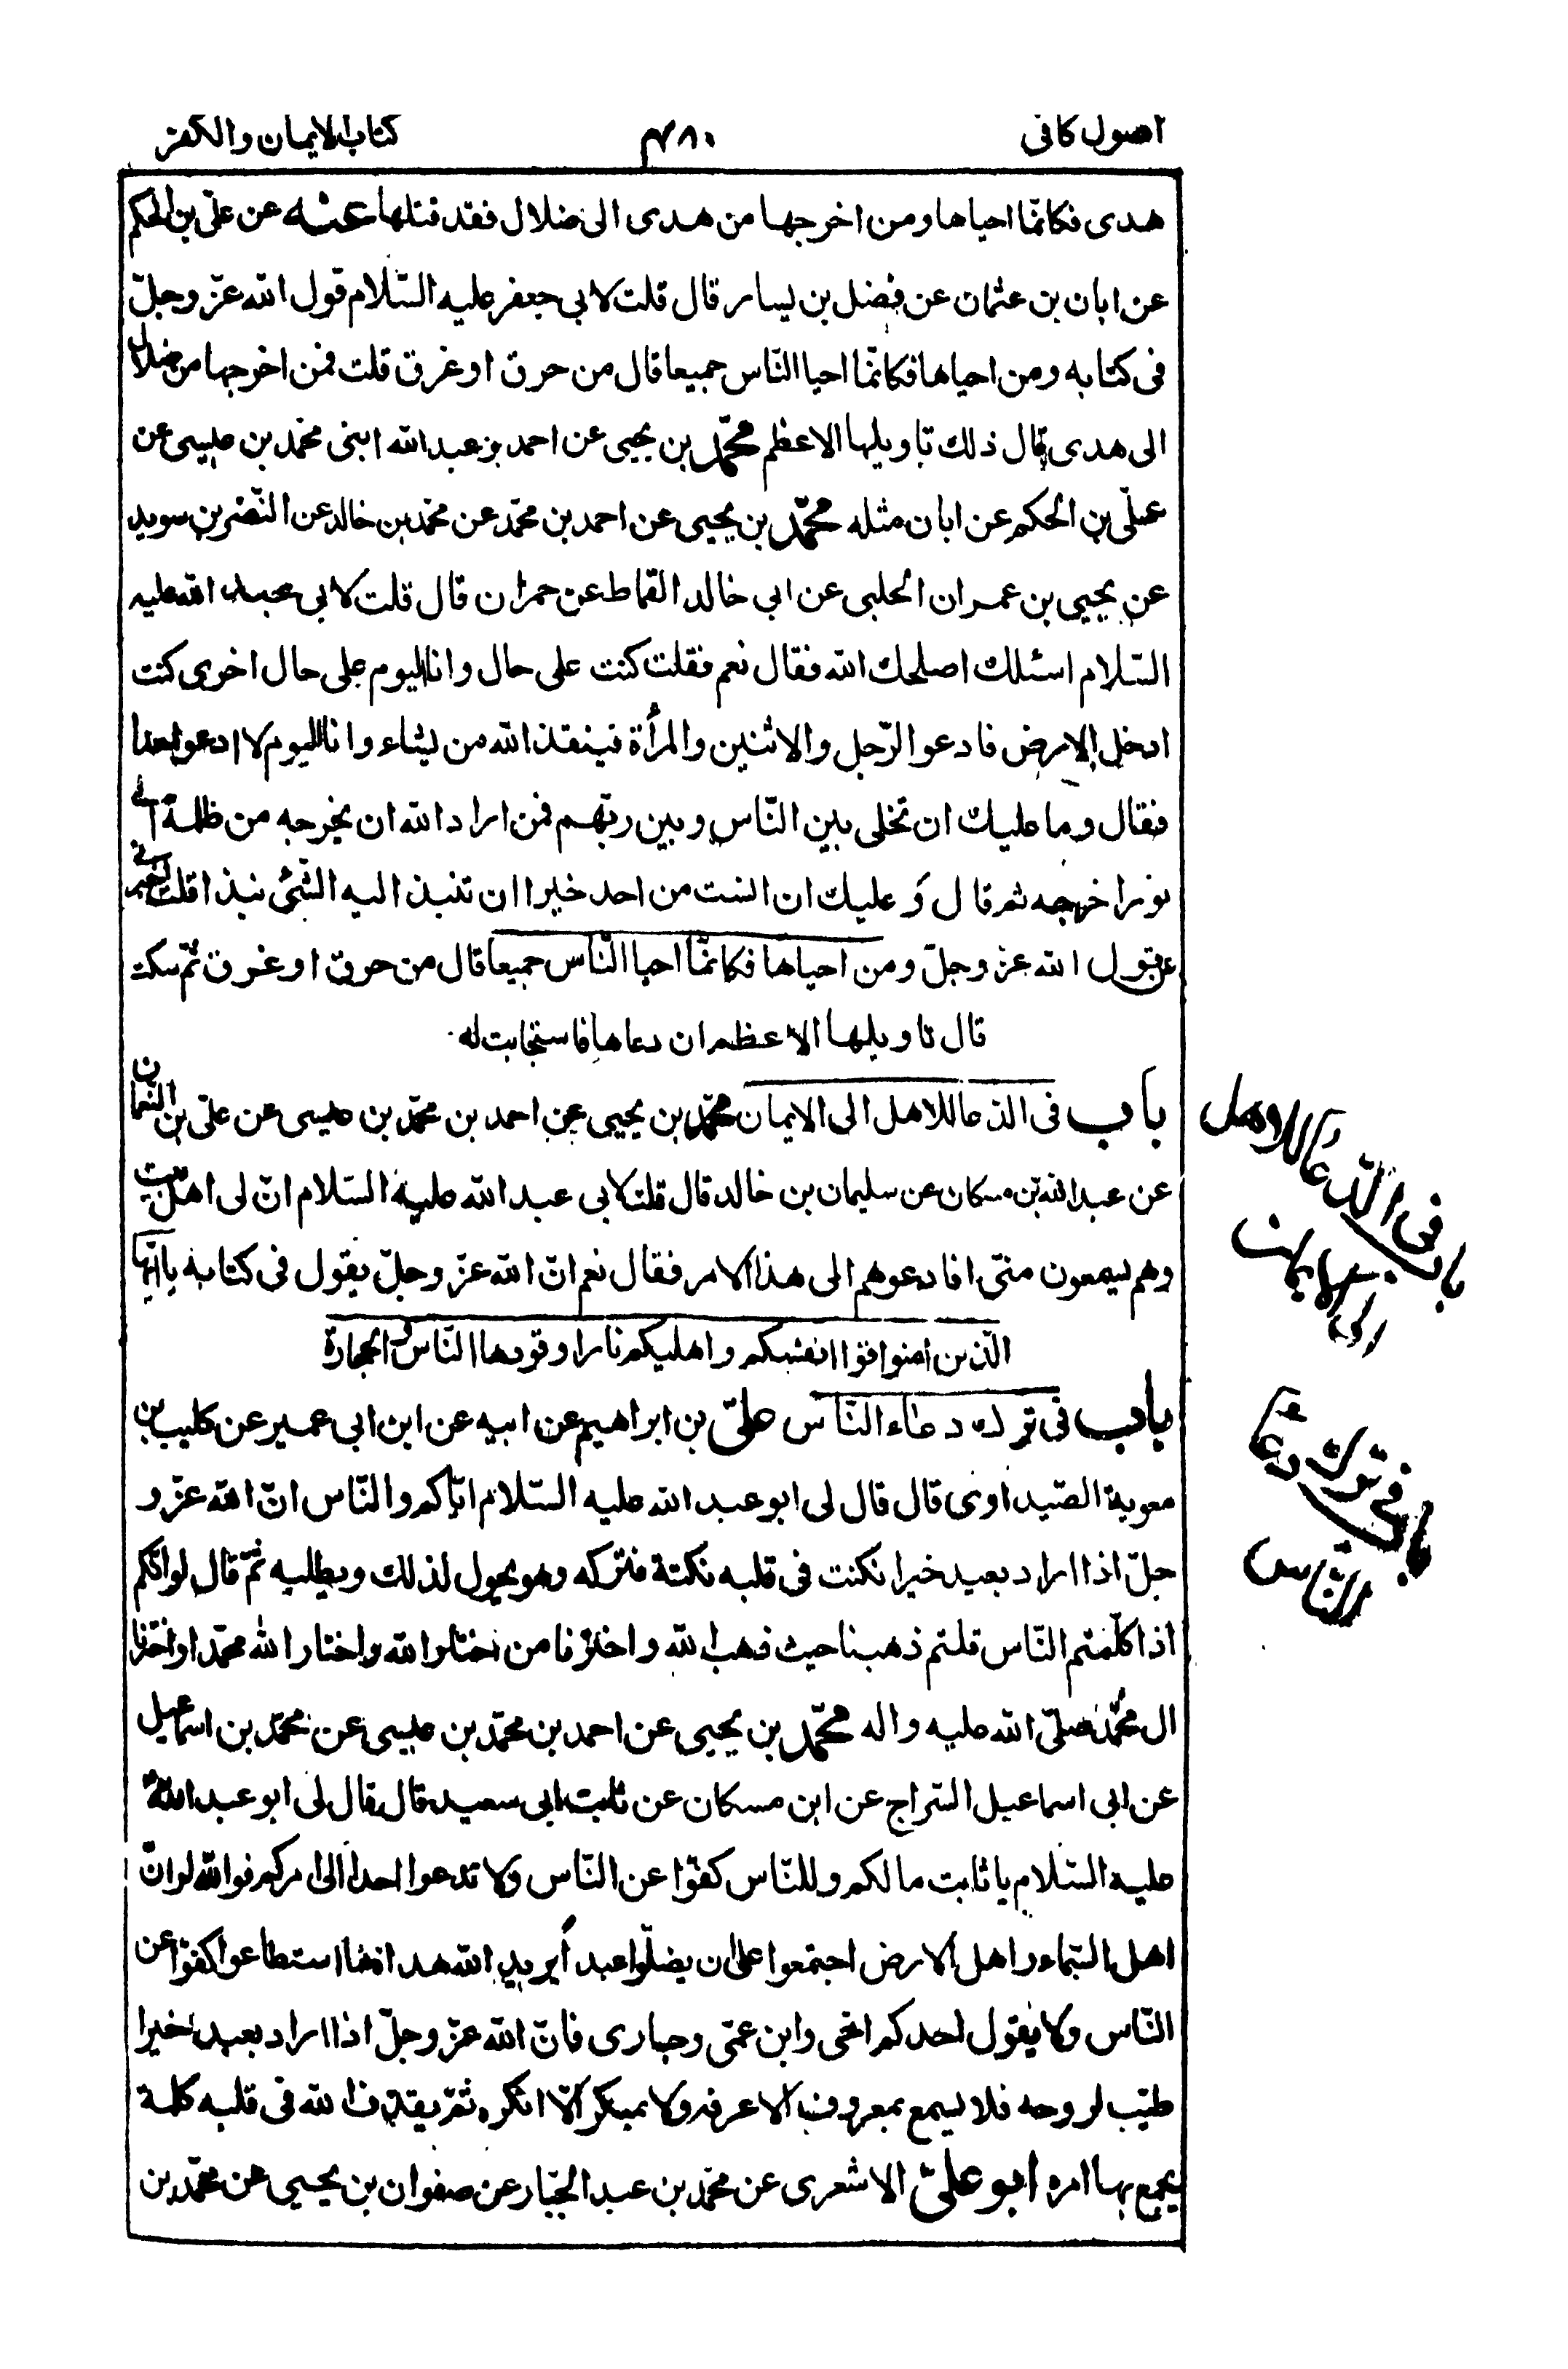 اصول كافى ۴۸۰ كتاب الايمان والكفر
هدى فكانّما احياها ومن اخرجها من هدى الى ضلال فقد قتلها عنه عن علىّ بن الحكم
عن ابان بن عثمان عن فضيل بن يسار قال قلت لابى جعفر عليه السّلام قول الله عزّ وجلّ
فى كتابه ومن احياها فكانّما احيا النّاس جميعا قال من حرق او غرق قلت فمن اخرجها من ضلال
الى هدى قال ذلك تاويلها الاعظم محمّد بن يحيى عن احمد بن عبد الله ابنى محمّد بن عيسى عن
علىّ بن الحكم عن ابان مثله محمّد بن يحيى عن احمد بن محمّد عن محمّد بن خالد عن النّضر بن سويد
عن يحيى بن عمران الحلبى عن ابى خالد القماط عن حمران قال قلت لابى عبد الله عليه
السّلام اسئلك اصلحك الله فقال نعم فقلت كنت على حال وانا اليوم على حال اخرى كنت
ادخل الارض فادعو الرّجل والاثنين والمرأة فينقذ الله من يشاء وانا اليوم لا ادعو احدا
فقال وما عليك ان تخلى بين النّاس وبين ربّهم فمن اراد الله ان يخرجه من ظلمة الى
نور اخرجه ثم قال وَ عليك ان انست من احد خيرا ان تنبذ اليه الشّئ نبذا قلت اخبرنى
عن قول الله عزّ وجلّ ومن احياها فكانّما احيا النّاس جميعا قال من حرق او غرق ثمّ سكت
قال تاويلها الاعظم ان دعاها فاستجابت له
باب فى الدّعا للاهل الى الايمان محمّد بن يحيى عن احمد بن محمّد بن عيسى عن علىّ بن النّعمان
عن عبد الله بن مسكان عن سليمان بن خالد قال قلت لابى عبد الله عليه السّلام انّ لى اهل بيت
وهم يسمعون منّى افادعوهم الى هذا الامر فقال نعم انّ الله عزّ وجلّ يقول فى كتابه يا ايّها
الّذين امنوا قوا انفسكم واهليكم نارا وقودها النّاس والحجارة
باب فى ترك دعاء النّاس علىّ بن ابراهيم عن ابيه عن ابن ابى عمير عن كليب بن
معوية الصّيداوى قال قال لى ابو عبد الله عليه السّلام ايّاكم والنّاس انّ الله عزّ و
جلّ اذا اراد بعبد خيرا نكت فى قلبه نكتة فتركه وهو يجول لذلك ويطلبه ثمّ قال لو انّكم
اذا كلّمتم النّاس قلتم ذهبنا حيث ذهب الله واخترنا من اختار الله واختار الله محمّدا واخترنا
ال محمّد صلّى الله عليه واله محمّد بن يحيى عن احمد بن محمّد بن عيسى عن محمّد بن اسماعيل
عن ابى اسماعيل السّراج عن ابن مسكان عن ثابت ابى سعيد قال قال لى ابو عبد الله
عليه السّلام يا ثابت ما لكم وللنّاس كفّوا عن النّاس ولا تدعوا احدا الى امركم فوالله لو انّ
اهل السّماء واهل الارض اجتمعوا على ان يضلّوا عبدا يريد الله هداه ما استطاعوا كفّوا عن
النّاس ولا يقول احدكم اخى وابن عمّى وجارى فانّ الله عزّ وجلّ اذا اراد بعبد خيرا
طيّب روحه فلا يسمع بمعروف الا عرفه ولا بمنكر الّا انكره ثمّ يقذف الله فى قلبه كلمة
يجمع بها امره ابو علىّ الاشعرى عن محمّد بن عبد الجبّار عن صفوان بن يحيى عن محمّد بن
باب فى الدّعا للاهل
الى الايمان
باب فى ترك دعاء
النّاس